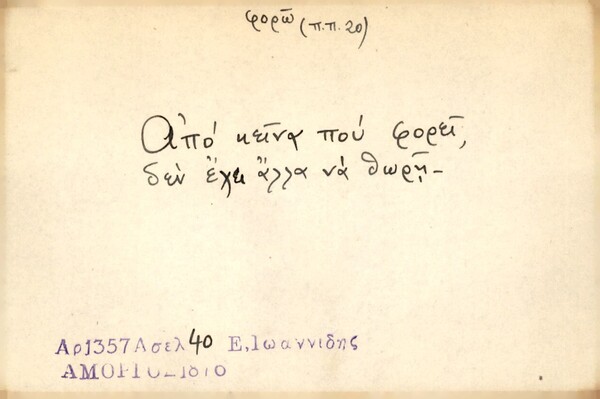 φορῶ (π.π. 20)
Ἀπό κεῖνα πού φορεῖ,
δέν ἔχει ἄλλα νά θωρῇ-
Αρ1357Ασελ 40 Ε,Ιωαννιδης
ΑΜΟΡΓΟΣ1876